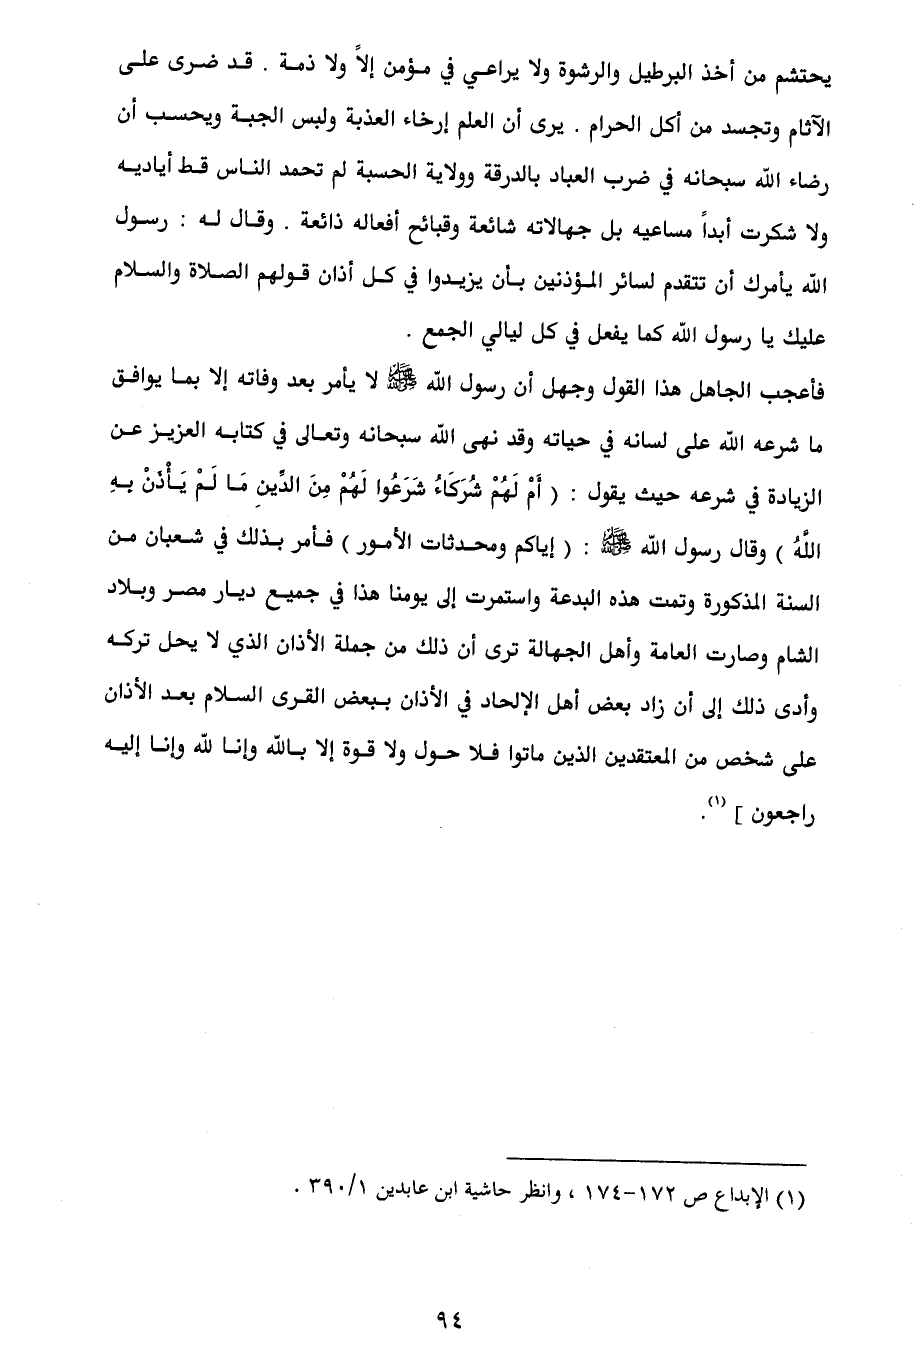 يحتشم من أخذ البرطيل والرشوة ولا يراعي في مؤمن إلاً ولا ذمة . قد ضرى على
الآثام وتجسد من أكل الحرام . يرى أن العلم إرخاء العذبة ولبس الجبة ويحسب أن
رضاء الله سبحانه في ضرب العباد بالدرقة وولاية الحسبة لم تحمد الناس قط أياديه
ولا شكرت أبداً مساعيه بل جهالاته شائعة وقبائح أفعاله ذائعة . وقال له : رسول
الله يأمرك أن تتقدم لسائر المؤذنين بأن يزيدوا في كل أذان قولهم الصلاة والسلام
عليك يا رسول الله كما يفعل في كل ليالي الجمع .
فأعجب الجاهل هذا القول وجهل أن رسول الله ﷺ لا يأمر بعد وفاته إلا بما يوافق
ما شرعه الله على لسانه في حياته وقد نهى الله سبحانه وتعالى في كتابه العزيز عن
الزيادة في شرعه حيث يقول : ( أَمْ لَهُمْ شُرَكَاءُ شَرَعُوا لَهُمْ مِنَ الدِّينِ مَا لَمْ يَأْذَنْ بِهِ
اللَّهُ ) وقال رسول الله ﷺ : ( إياكم ومحدثات الأمور ) فأمر بذلك في شعبان من
السنة المذكورة وتمت هذه البدعة واستمرت إلى يومنا هذا في جميع ديار مصر وبلاد
الشام وصارت العامة وأهل الجهالة ترى أن ذلك من جملة الأذان الذي لا يحل تركه
وأدى ذلك إلى أن زاد بعض أهل الإلحاد في الأذان ببعض القرى السلام بعد الأذان
على شخص من المعتقدين الذين ماتوا فلا حول ولا قوة إلا بالله وإنا لله وإنا إليه
راجعون ] (١).
(١) الإبداع ص ١٧٢-١٧٤ ، وانظر حاشية ابن عابدين ٣٩٠/١ .
٩٤